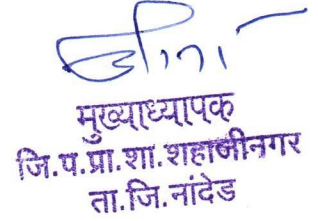 मुख्याध्यापक
जि.प.प्रा.शा.शहाजीनगर
ता.जि.नांदेड